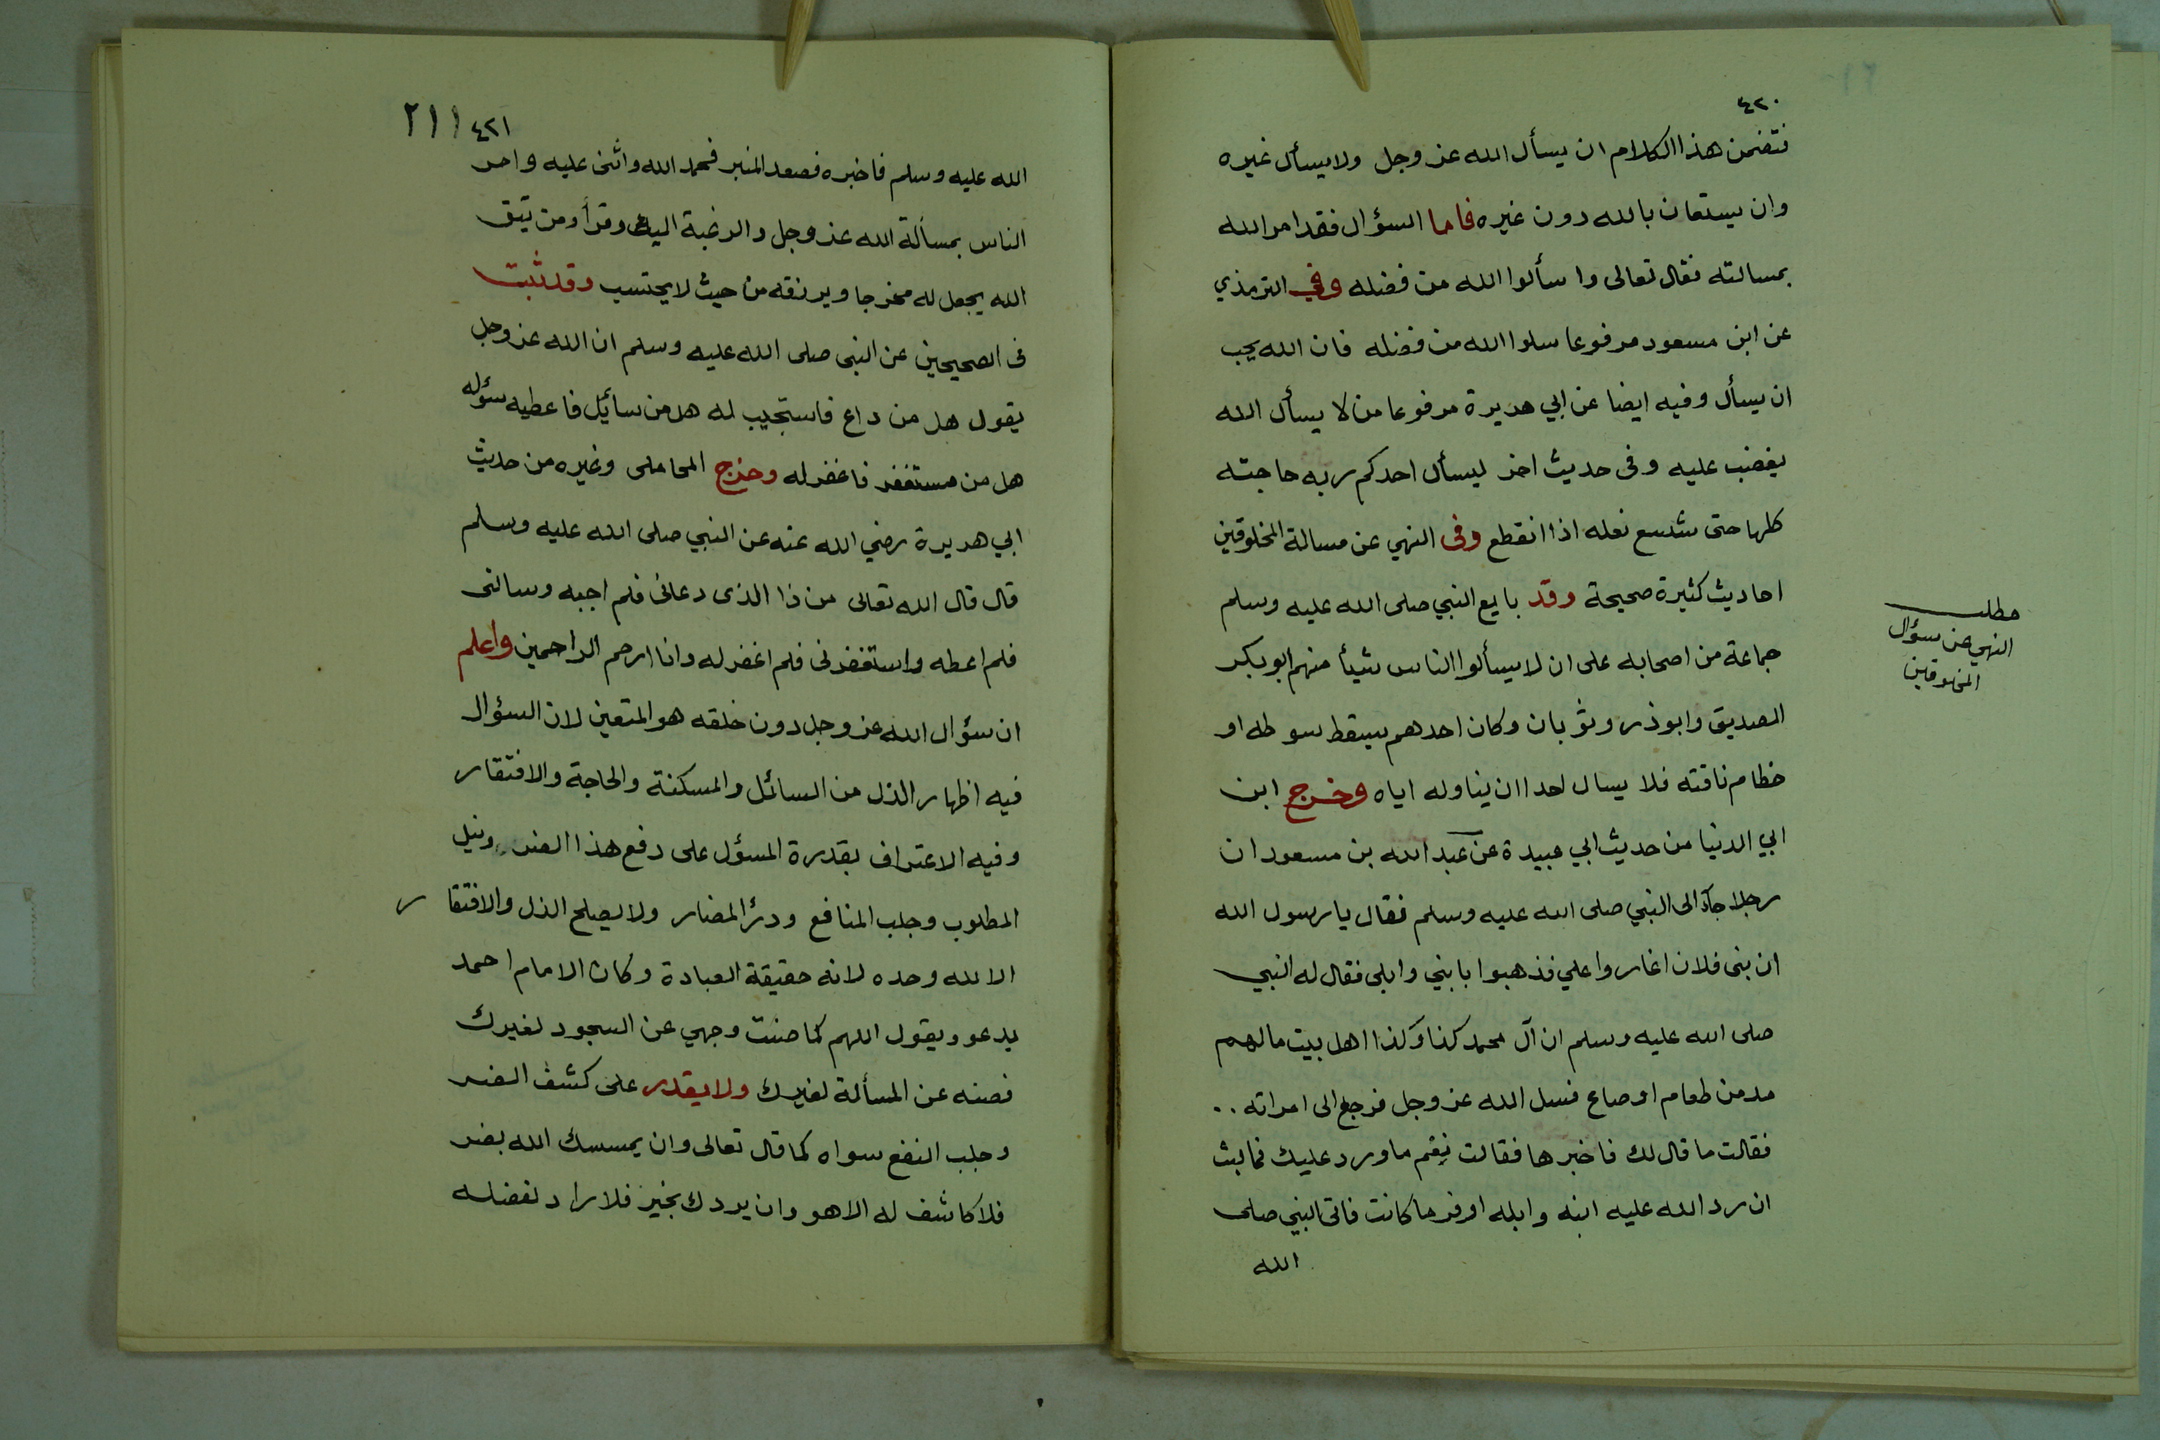 ٤٢٠
فتضمن هذا الكلام ان يسأل الله عز وجل ولا يسأل غيره
وان يستعان بالله دون غيره فاما السؤال فقد امر الله
بمسالته فقال تعالى واسألوا الله من فضله وفي الترمذي
عن ابن مسعود مرفوعا سلوا الله من فضله فان الله يحب
ان يسأل وفيه ايضا عن ابي هريرة مرفوعا من لا يسأل الله
يغضب عليه وفى حديث اخر ليسأل احدكم ربه حاجته
كلها حتى شسع نعله اذا انقطع وفى النهي عن مسالة المخلوقين
احاديث كثيرة صحيحة وقد بايع النبي صلى الله عليه وسلم
جماعة من اصحابه على ان لا يسألوا الناس شيأ منهم ابو بكر
الصديق وابو ذر وثوبان وكان احدهم يسقط سوطه او
خطام ناقته فلا يسال احدا ان يناوله اياه وخرج ابن
ابي الدنيا من حديث ابي عبيدة عن عبد الله بن مسعود ان
رجلا جآء الى النبي صلى الله عليه وسلم فقال يا رسول الله
ان بنى فلان اغاروا علي فذهبوا بابني وابلى فقال له النبي
صلى الله عليه وسلم ان آل محمد كذا وكذا اهل بيت ما لهم
مد من طعام او صاع فسل الله عز وجل فرجع الى امراته ..
فقالت ما قال لك فاخبرها فقالت نِعْم ما ورد عليك فما لبث
ان رد الله عليه ابنه وابله اوفر ما كانت فاتى النبي صلى
الله
مطلب
النهي عن سؤال
المخلوقين
٤٢١ ٢١١
الله عليه وسلم فاخبره فصعد المنبر فحمد الله واثنى عليه وامر
الناس بمسألة الله عز وجل والرغبة اليه وقرأ ومن يتق
الله يجعل له مخرجا ويرزقه من حيث لا يحتسب وقد ثبت
فى الصحيحين عن النبى صلى الله عليه وسلم ان الله عز وجل
يقول هل من داع فاستجيب له هل من سائل فاعطيه سؤله
هل من مستغفر فاغفر له وخرج المحاملى وغيره من حديث
ابي هريرة رضي الله عنه عن النبي صلى الله عليه وسلم
قال قال الله تعالى من ذا الذى دعانى فلم اجبه وسالنى
فلم اعطه واستغفرنى فلم اغفر له وانا ارحم الراحمين واعلم
ان سؤال الله عز وجل دون خلقه هو المتعين لان السؤال
فيه اظهار الذل من السائل والمسكنة والحاجة والافتقار
وفيه الاعتراف بقدرة المسؤل على دفع هذا الضر ونيل
المطلوب وجلب المنافع ودرؤ المضار ولا يصلح الذل والافتقار
الا لله وحده لانه حقيقة العبادة وكان الامام احمد
يدعو ويقول اللهم كما صنت وجهي عن السجود لغيرك
فصنه عن المسألة لغيرك ولا يقدر على كشف الضر
وجلب النفع سواه كما قال تعالى وان يمسسك الله بضر
فلا كاشف له الا هو وان يردك بخير فلا راد لفضله